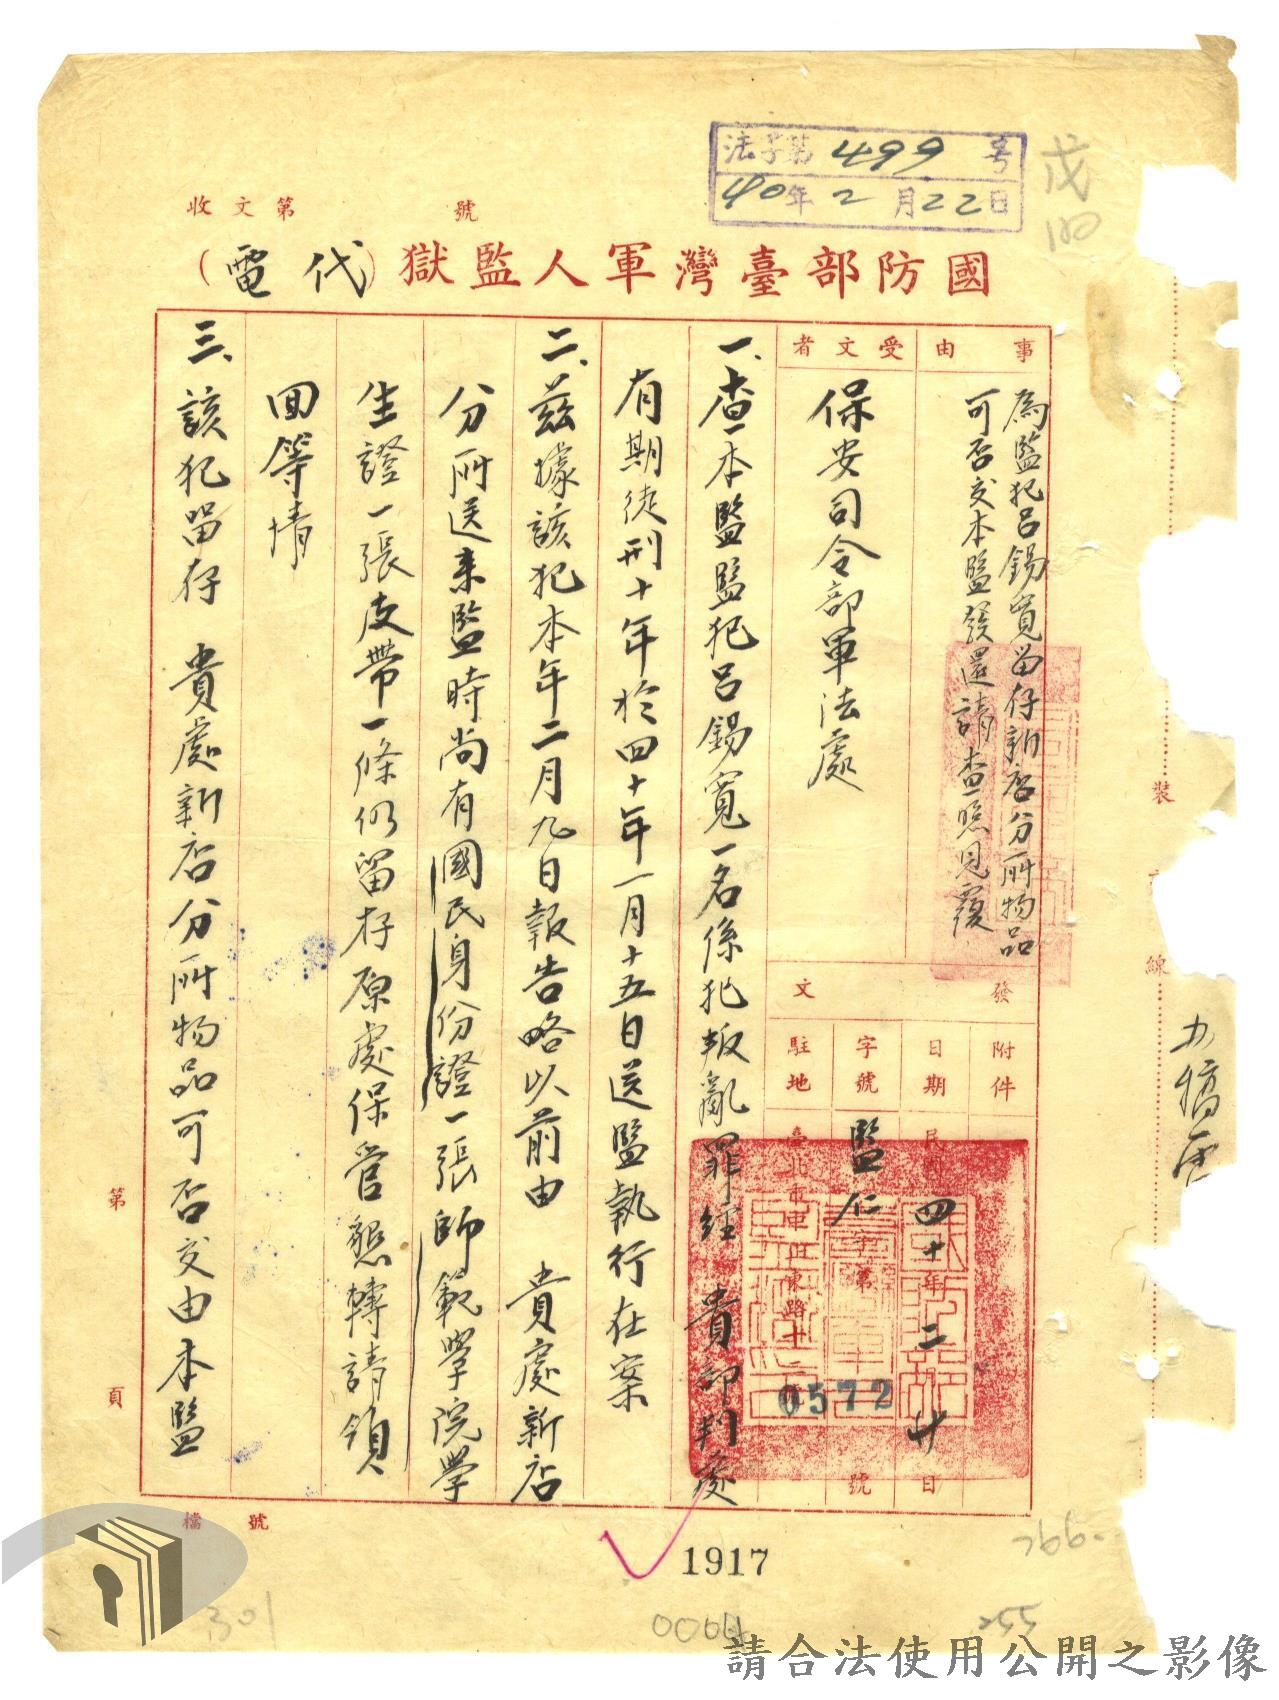 法字第499号
40年2月22日
收文第 號
國防部臺灣軍人監獄(代電)
事由
為監犯呂錫寬留存新店分所物品
可否交本監發還請查照見覆
受文者
保安司令部軍法處
發文
附件
日期
民國四十年二月廿日
字號
監仁字第0572號
駐地
臺北市中正東路十二
一、查本監監犯呂錫寬一名係犯叛亂罪經 貴部判處
有期徒刑十年於四十年一月十五日送監執行在案
二、茲據該犯本年二月九日報告略以前由 貴處新店
分所送來監時尚有國民身份證一張師範學院學
生證一張皮帶一條仍留存原處保管懇轉請領
回等情
三、該犯留存 貴處新店分所物品可否交由本監
裝
線
第
頁
檔號
1917
301
255
請合法使用公開之影像